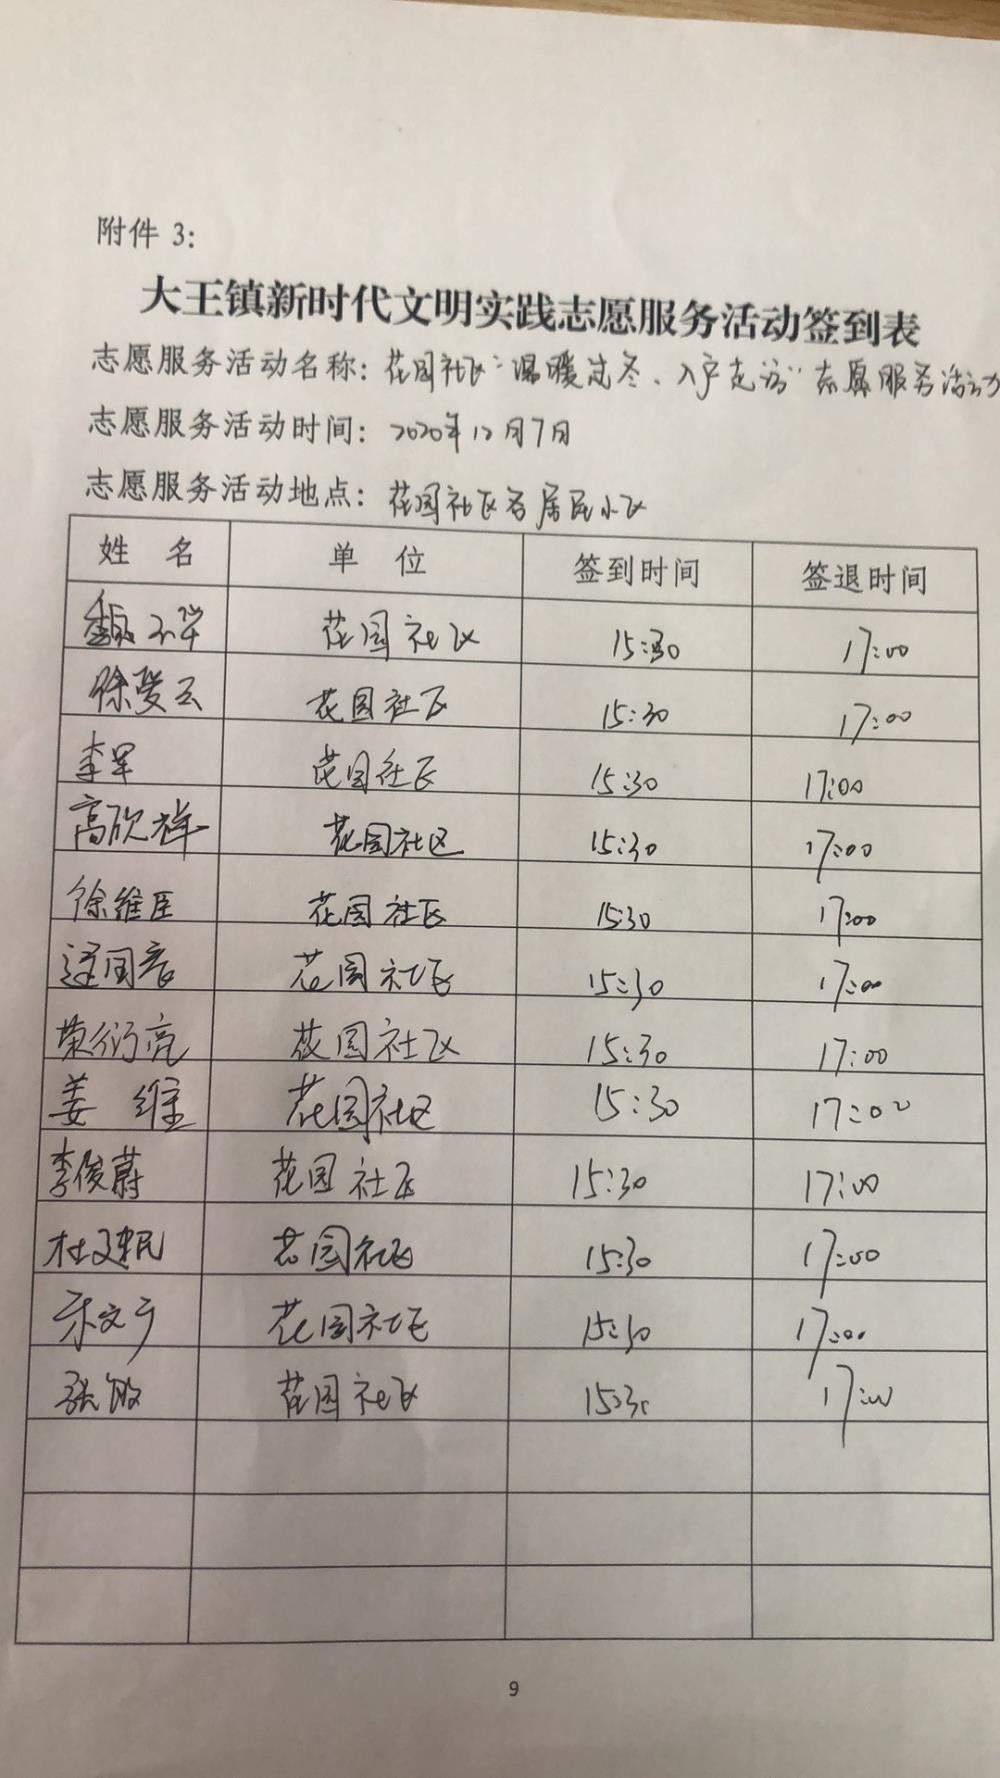 附件 3:
大王镇新时代文明实践志愿服务活动签到表
志愿服务活动名称: 花园社区“温暖过冬、入户走访”志愿服务活动
志愿服务活动时间: 2020年12月7日
志愿服务活动地点: 花园社区各居民小区
姓 名 单 位 签到时间 签退时间
花园社区 15:30 17:00
徐爱云 花园社区 15:30 17:00
李军 花园社区 15:30 17:00
高欣祥 花园社区 15:30 17:00
徐维臣 花园社区 15:30 17:00
花园社区 15:30 17:00
荣衍亮 花园社区 15:30 17:00
姜 维 花园社区 15:30 17:00
李俊蔚 花园社区 15:30 17:00
花园社区 15:30 17:00
花园社区 15:30 17:00
张敏 花园社区 15:30 17:00
9